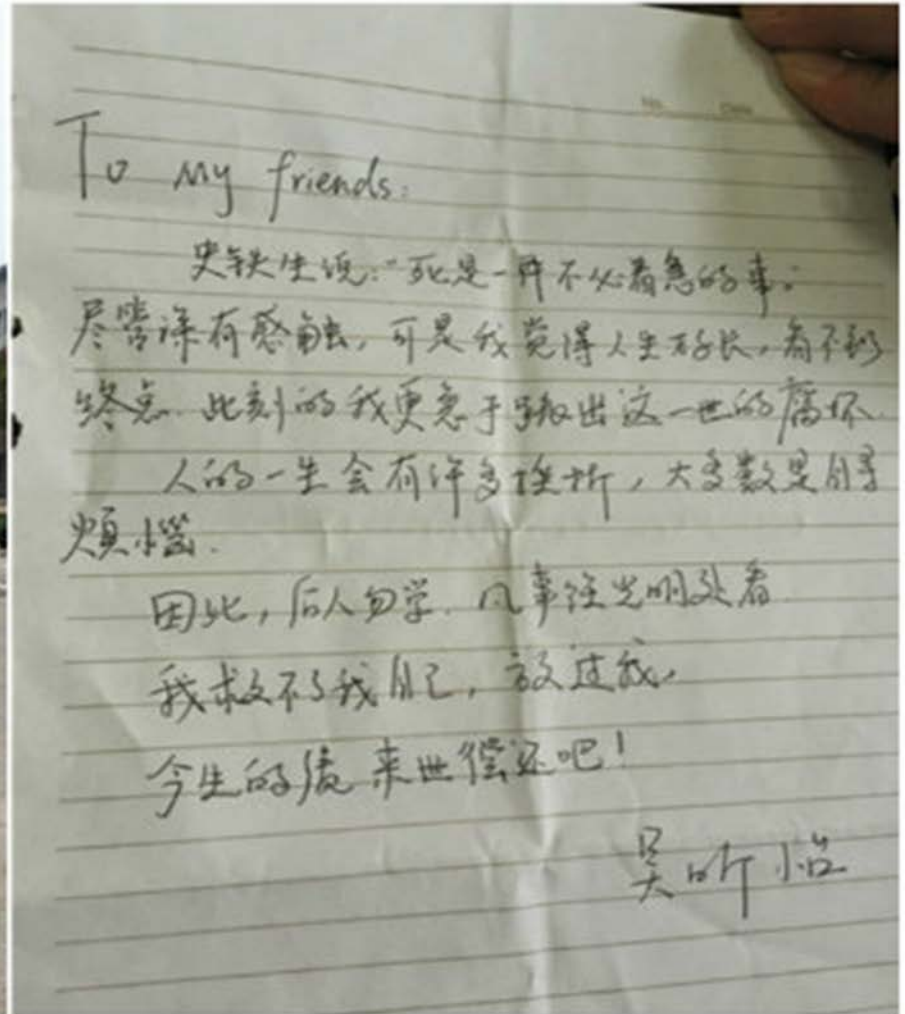 To my friends:
史铁生说:“死是一件不必着急的事。
尽管深有感触,可是我觉得人生好长,看不到
终点.此刻的我更急于跳出这一世的腐坏.
人的一生会有许多挫折,大多数是自寻
煩惱.
因此,后人勿学.凡事往光明处看
我救不了我自己,放过我.
今生的债来世偿还吧!
吴昕怡